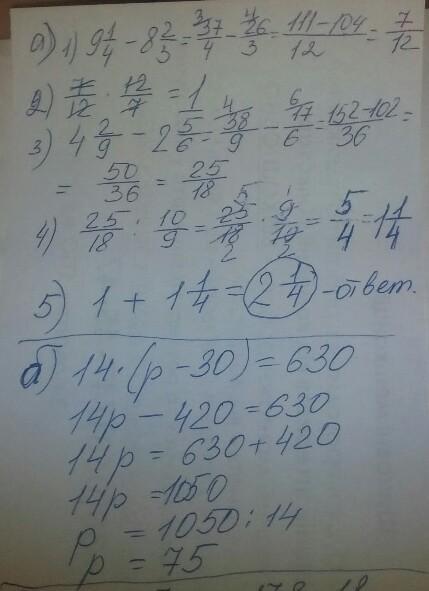 а) 1) 9 1/4 - 8 2/3 = 37/4 - 26/3 = (111-104)/12 = 7/12
2) 7/12 · 12/7 = 1
3) 4 2/9 - 2 5/6 = 38/9 - 17/6 = (152-102)/36 =
= 50/36 = 25/18
4) 25/18 : 10/9 = 25/18 · 9/10 = 5/4 = 1 1/4
5) 1 + 1 1/4 = 2 1/4 - ответ.
б) 14·(p-30) = 630
14p - 420 = 630
14p = 630 + 420
14p = 1050
p = 1050 : 14
p = 75